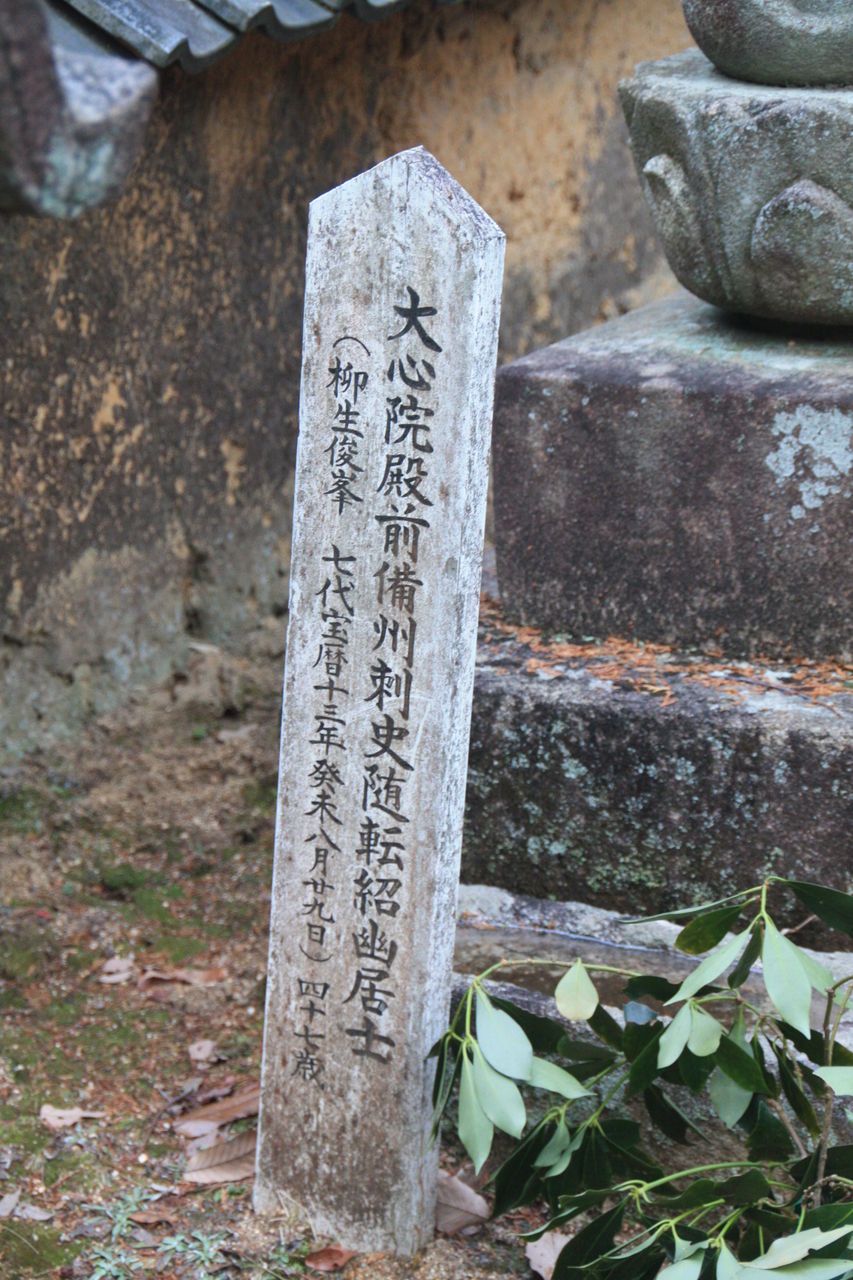 大心院殿前備州刺史随転紹幽居士
（柳生俊峯　七代宝暦十三年癸未八月廿九日）四十七歳